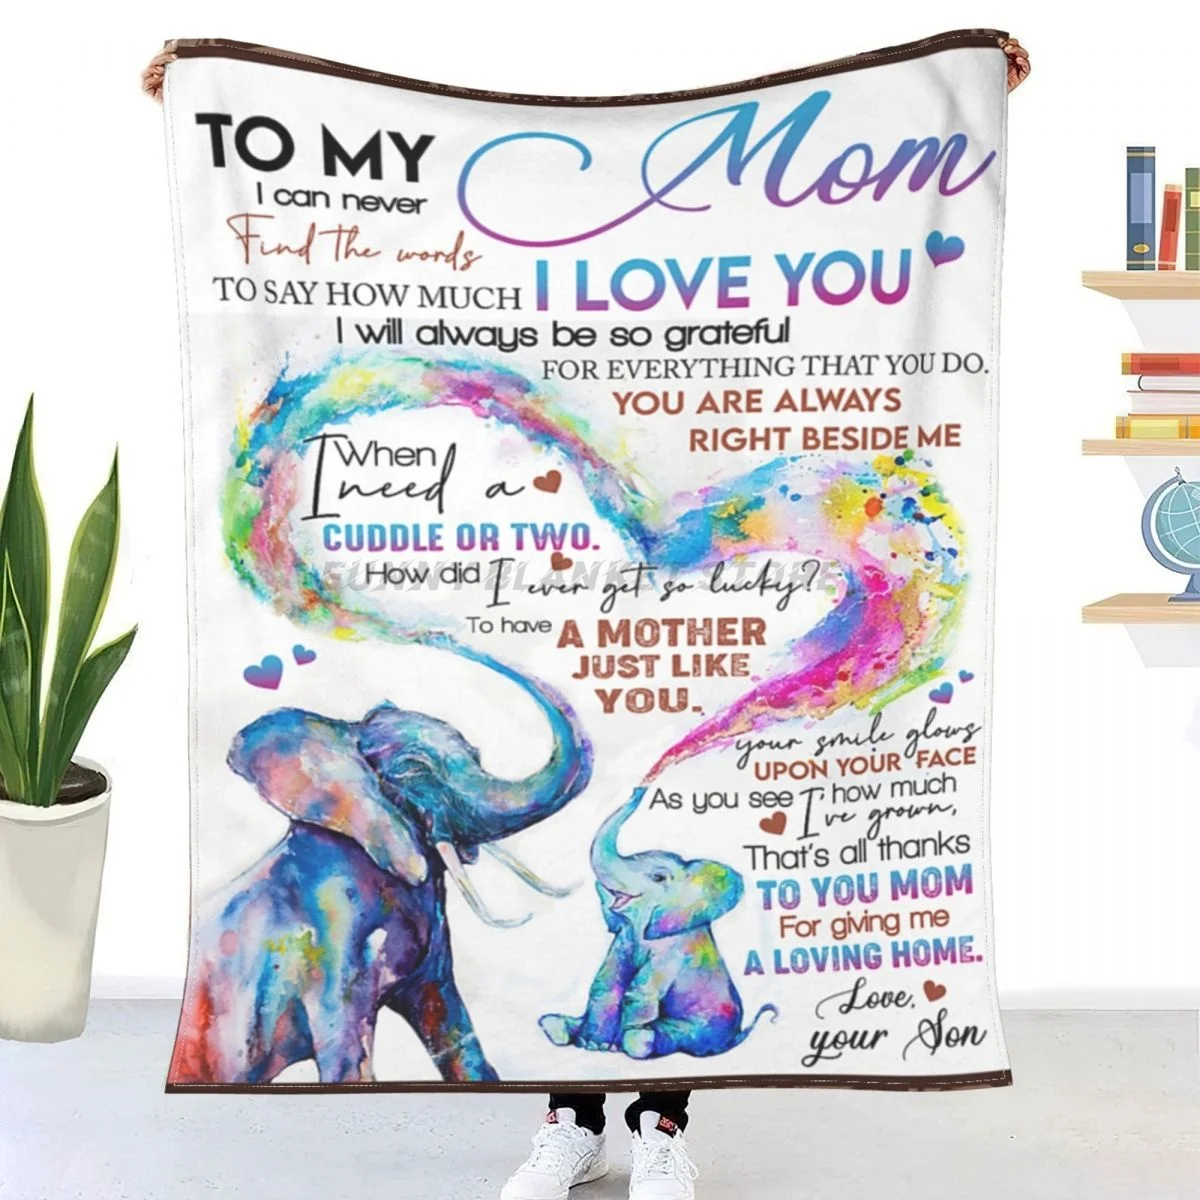 TO MY Mom
I can never
Find the words
TO SAY HOW MUCH I LOVE YOU
I will always be so grateful
FOR EVERYTHING THAT YOU DO.
YOU ARE ALWAYS
RIGHT BESIDE ME
When
I need a
CUDDLE OR TWO.
SUNNY BLANKET STORE
How did I ever get so lucky?
To have A MOTHER
JUST LIKE
YOU.
your smile glows
UPON YOUR FACE
As you see how much
I've grown,
That's all thanks
TO YOU MOM
For giving me
A LOVING HOME.
Love,
your Son